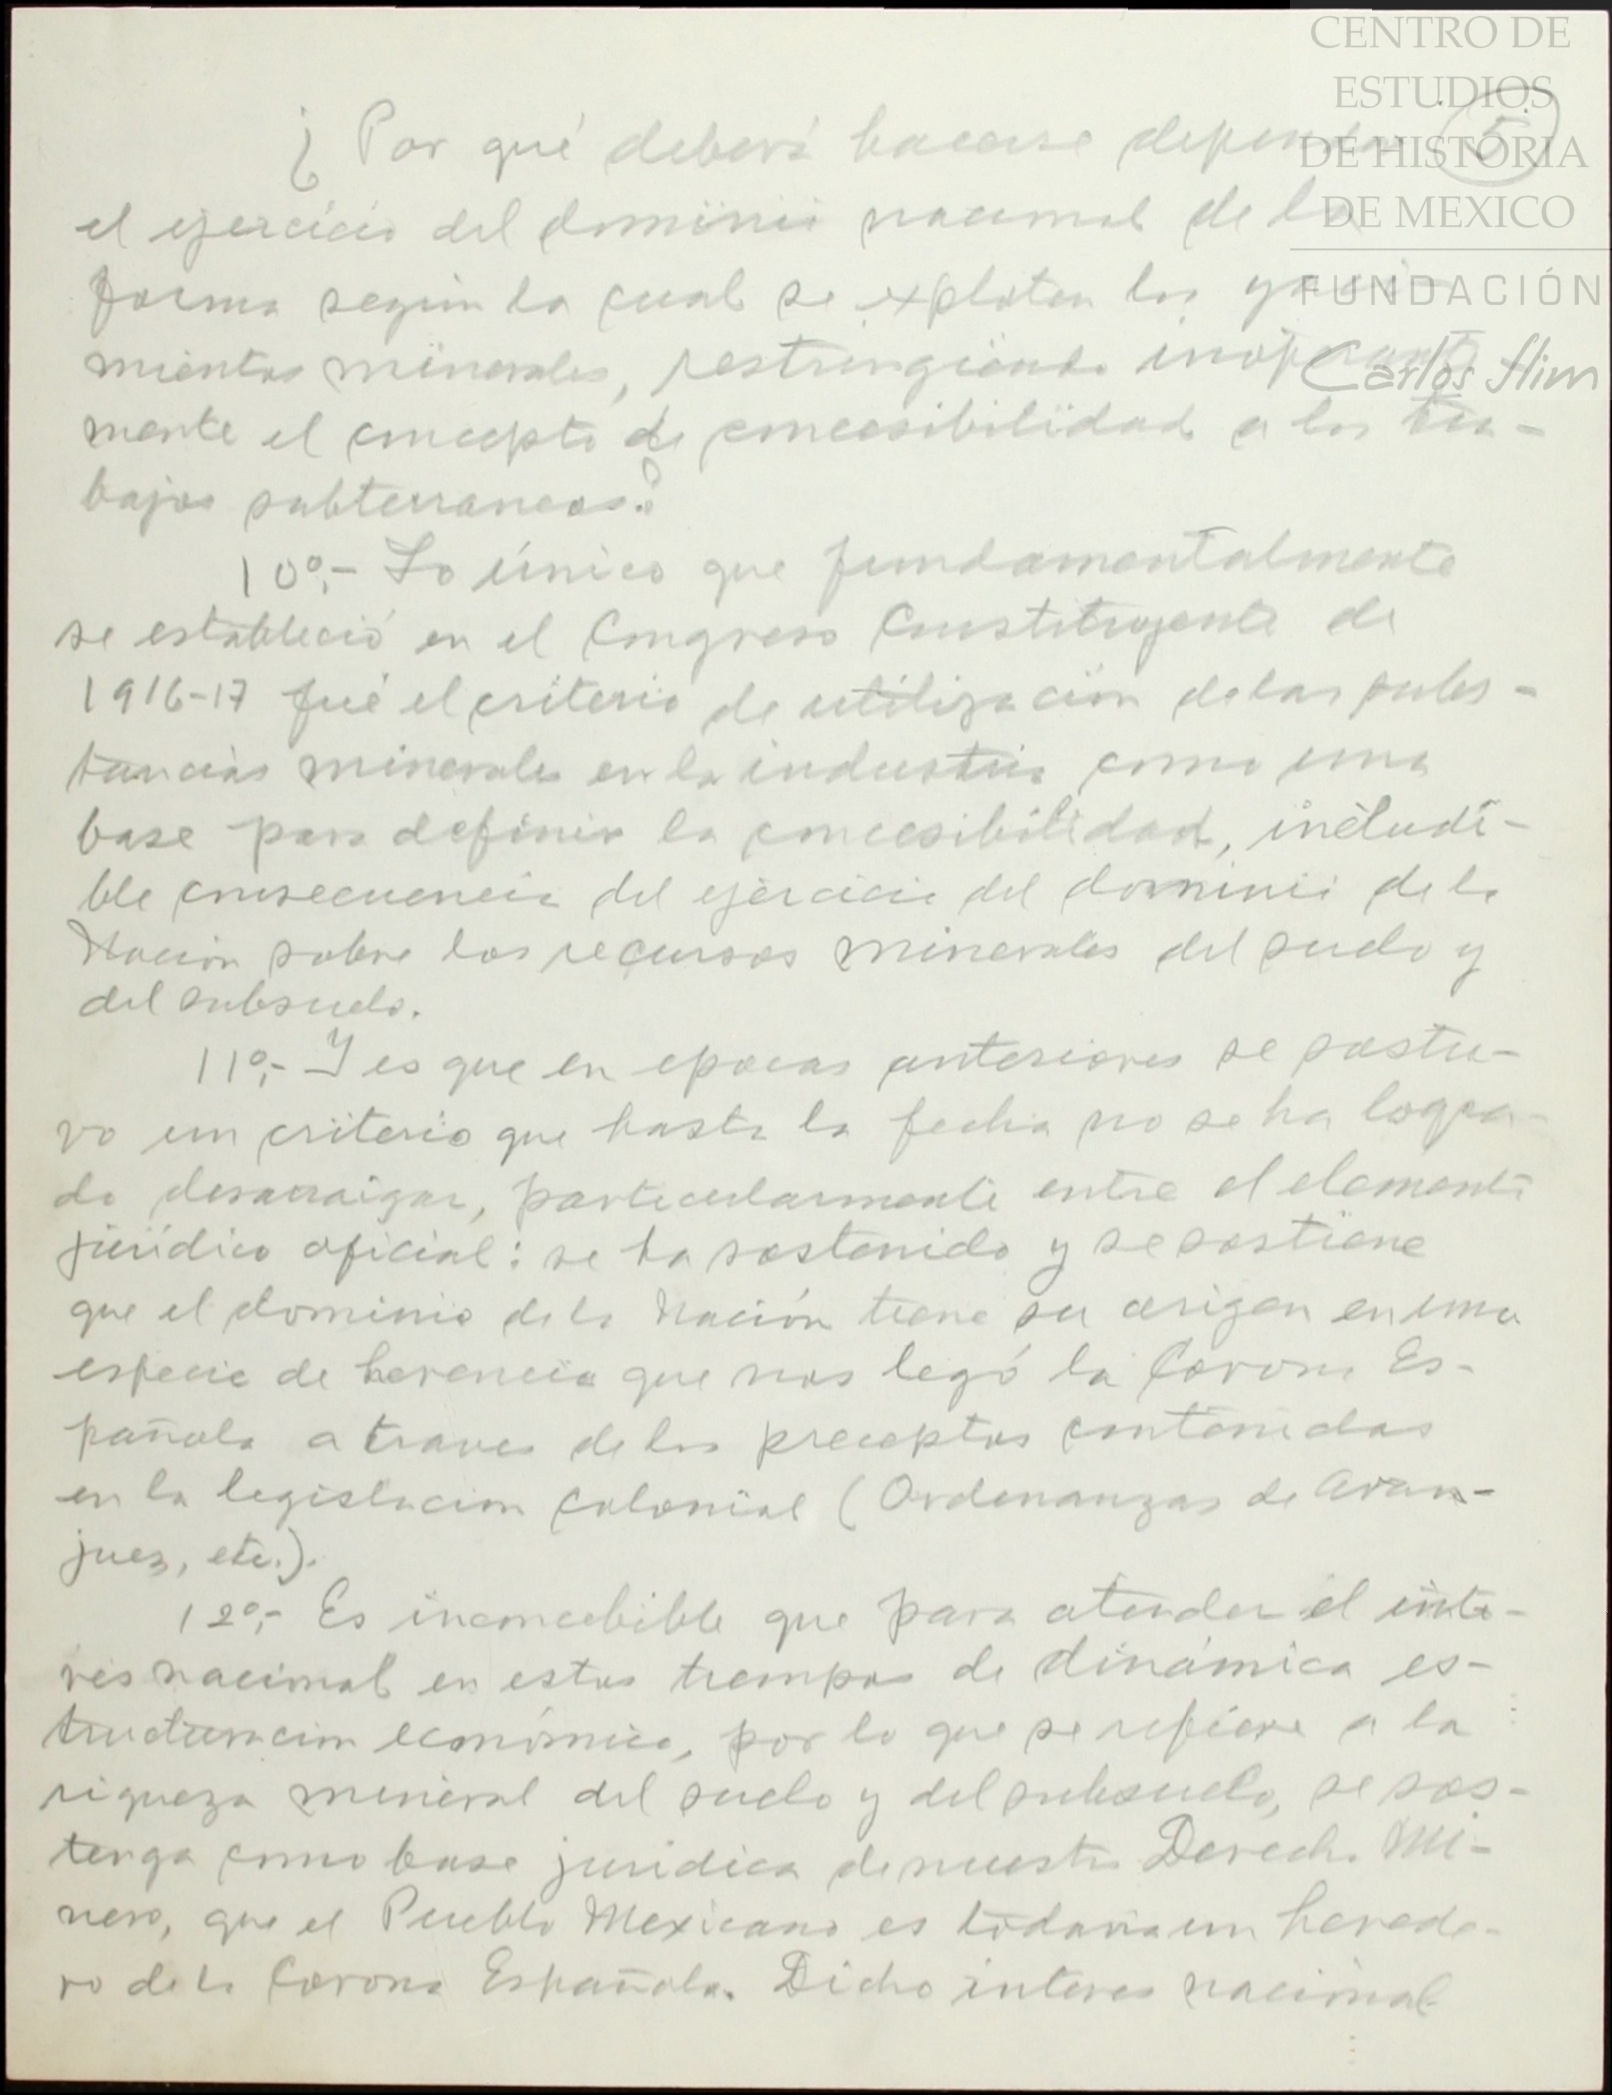 CENTRO DE
ESTUDIOS
DE HISTORIA
DE MEXICO
FUNDACIÓN
Carlos Slim
5
¿Por qué deberá hacerse depender
el ejercicio del dominio nacional de la
forma según la cual se explotan los yaci-
mientos minerales, restringiendo
mente el concepto de concesibilidad a los tra-
bajos subterraneos?
10º,- Lo único que fundamentalmente
se estableció en el Congreso Constituyente de
1916-17 fué el criterio de utilización de las subs-
tancias minerales en la industria como una
base para definir la concesibilidad, ineludi-
ble consecuencia del ejercicio del dominio de la
Nación sobre los recursos minerales del suelo y
del subsuelo.
11º,- Y es que en epocas anteriores se sostu-
vo un criterio que hasta la fecha no se ha logra-
do desarraigar, particularmente entre el elemento
jurídico oficial: se ha sostenido y se sostiene
que el dominio de la Nación tiene su origen en una
especie de herencia que nos legó la Corona Es-
pañola a traves de los preceptos contenidos
en la legislacion colonial (Ordenanzas de Aran-
juez, etc.).
12º,- Es inconcebible que para atender el inte-
rés nacional en estos tiempos de dinámica es-
tructuracion económica, por lo que se refiere a la
riqueza mineral del suelo y del subsuelo, se sos-
tenga como base juridica de nuestro Derecho Mi-
nero, que el Pueblo Mexicano es todavia un herede-
ro de la Corona Española. Dicho interes nacional